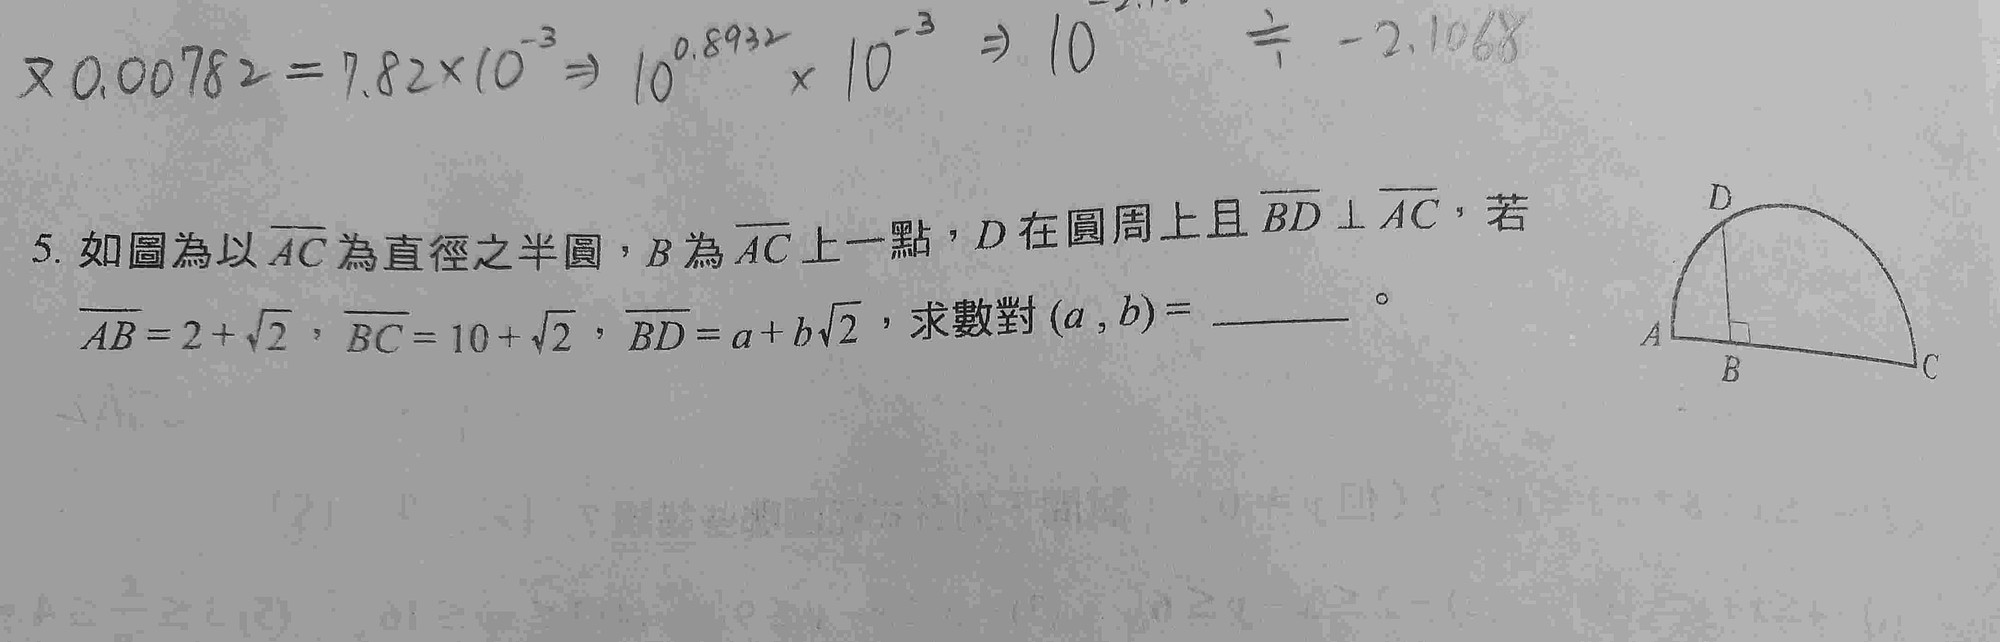 又0.00782=7.82×10⁻³⇒10^0.8932×10⁻³⇒10 ≑ -2.1068
5. 如圖為以 AC 為直徑之半圓，B 為 AC 上一點，D 在圓周上且 BD ⊥ AC，若
AB = 2 + √2，BC = 10 + √2，BD = a + b√2，求數對 (a , b) = ______ 。
D
A
B
C